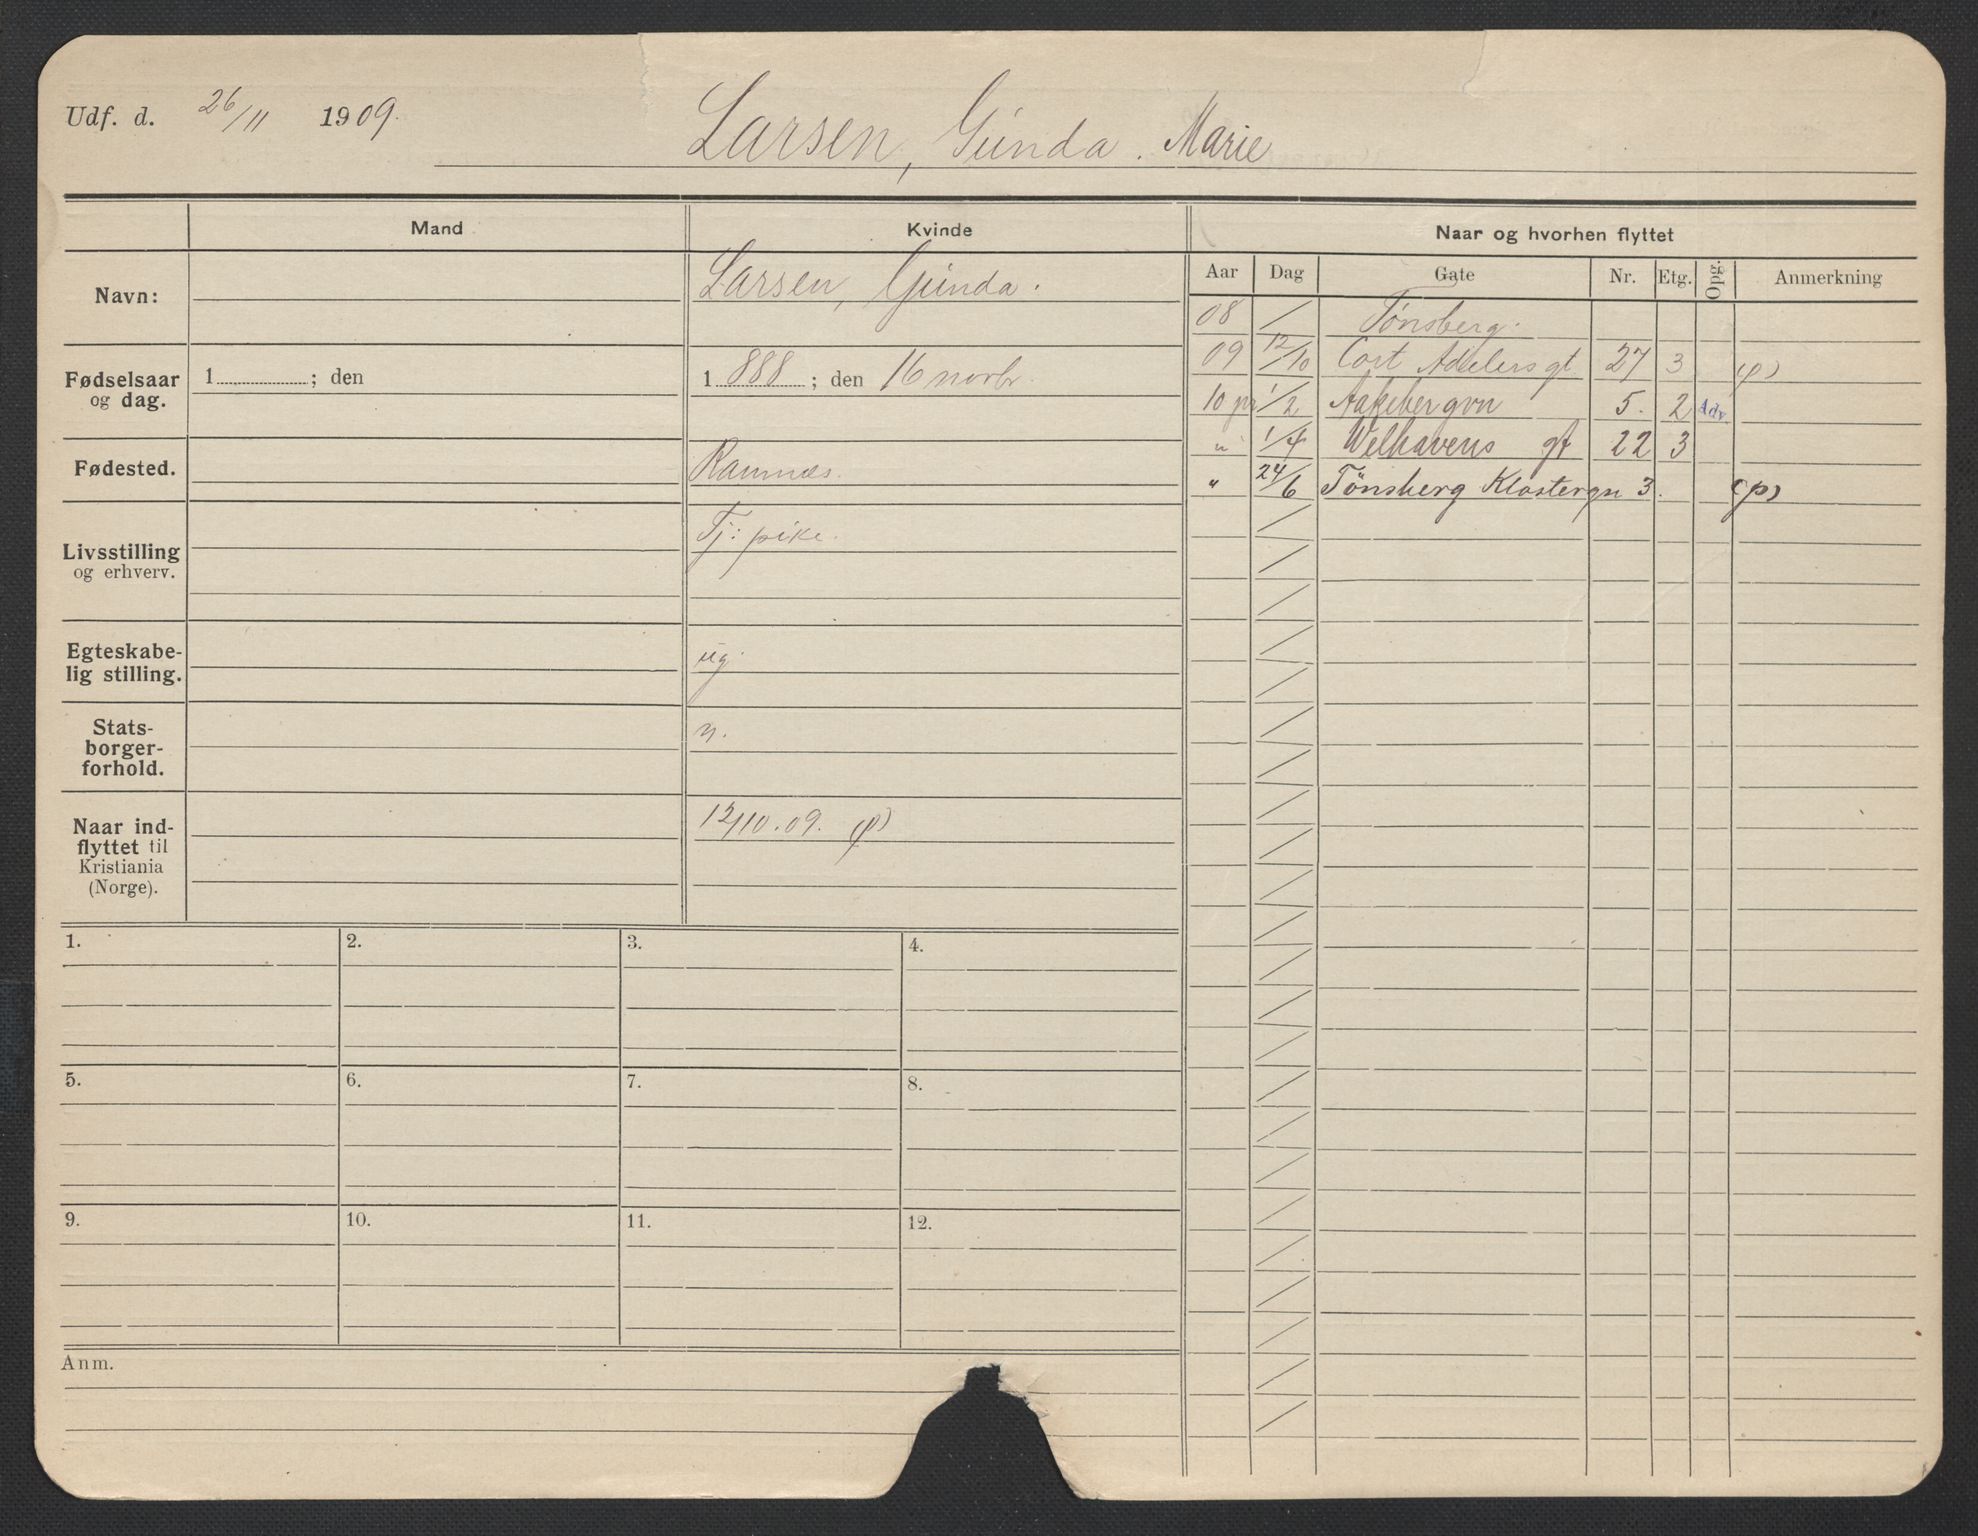 Udf. d. 26/11 1909.
Larsen, Gunda. Marie
Mand
Kvinde
Naar og hvorhen flyttet
Navn:
Larsen, Gunda.
Fødselsaar
og dag.
1 ; den
1 888 ; den 16 novbr.
Fødested.
Ramnæs.
Livsstilling
og erhverv.
Tj: pike.
Egteskabe-
lig stilling.
ug.
Stats-
borger-
forhold.
n.
Naar ind-
flyttet til
Kristiania
(Norge).
12/10.09. (p)
Aar Dag Gate Nr. Etg. Opg. Anmerkning
08 / Tønsberg.
09 12/10 Cort Adelersgt 27 3 (p)
10 pr 1/2 Aakebergvn 5. 2 Adv
" 1/4 Welhavens gt 22 3
" 24/6 Tönsberg Klostergn 3. (p)
1.
2.
3.
4.
5.
6.
7.
8.
9.
10.
11.
12.
Anm.